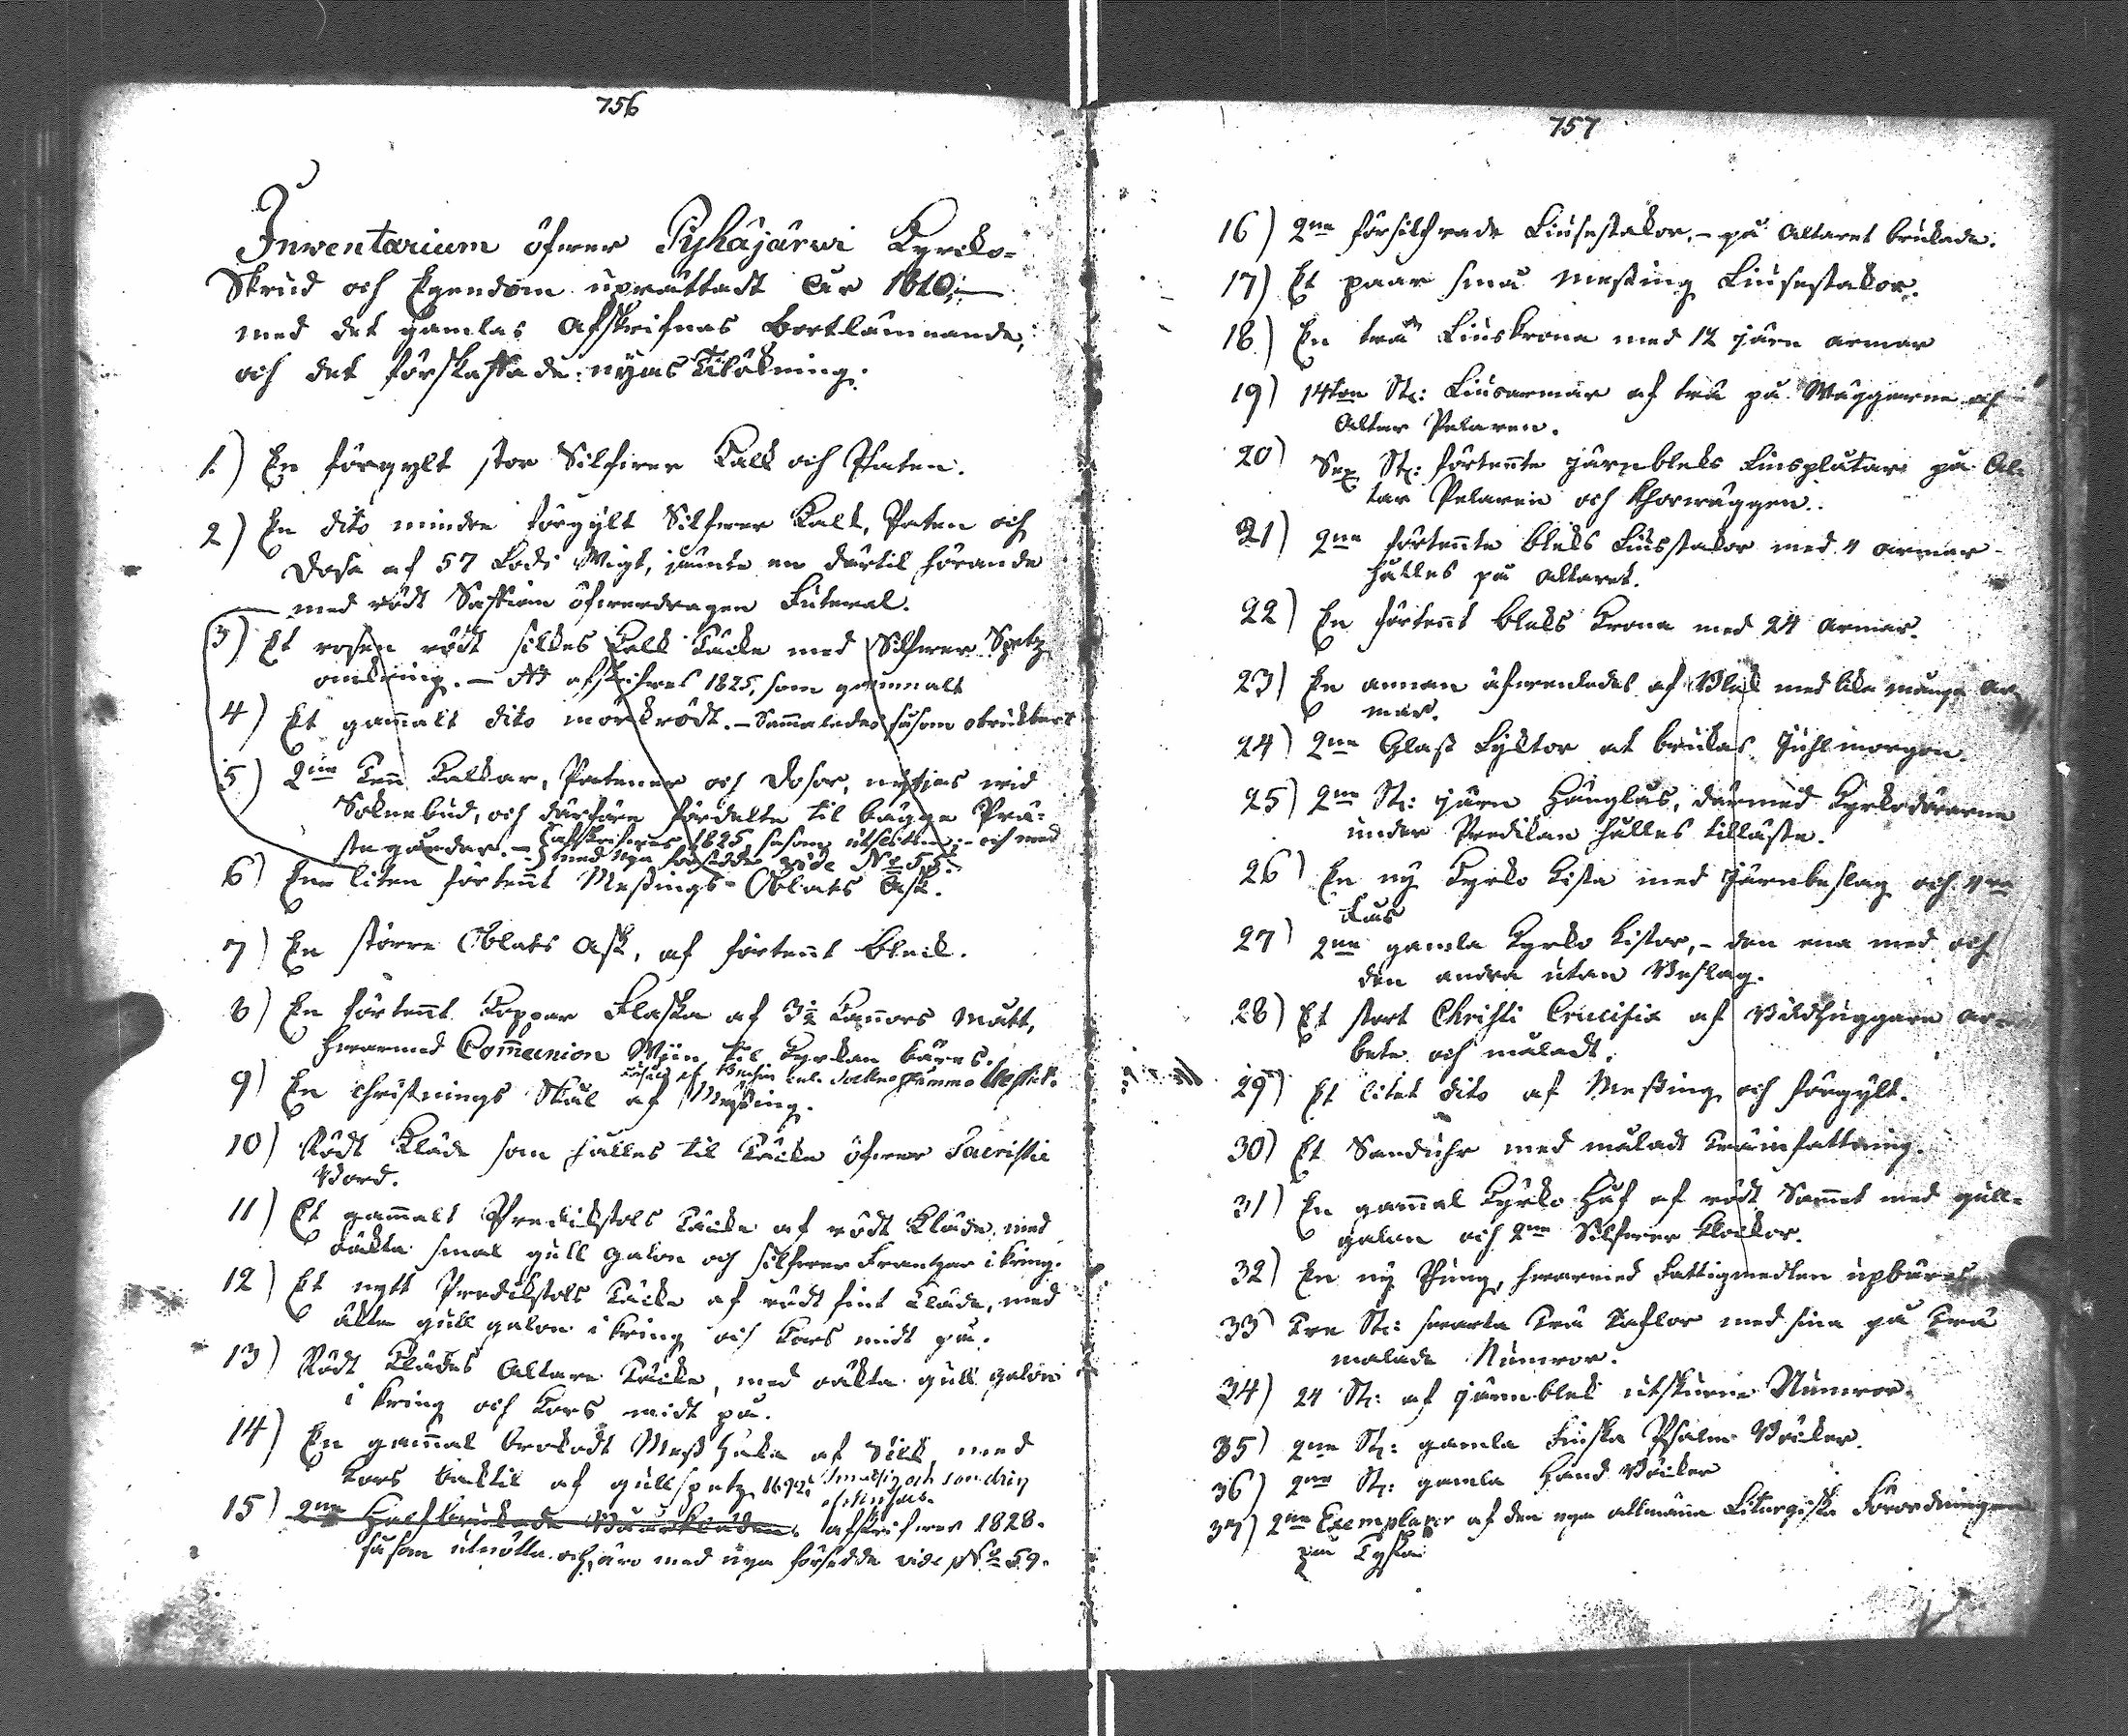 756
Inwentarium öfwer Pyhäjärwi Kyrko-
Skrud och Egendom uprättadt År 1810;
med det gamlas Afskrifnas bortlämnande,
och det förskaffade nyas tilökning.
1.) En förgylt stor Silfwer Kalk och Paten.
2) En dito mindre förgylt Silfwer Kalk, Paten och
Dosa af 57 Lods Wigt, jämte en därtil hörande
med rödt Saffian öfwerdragen Futeral.
3) Et rosen rödt silkes Kalk Täcke med Silfwer Spetz
omkring. – afskrifwes 1825, som gammalt
4) Et gam̄alt dito mörkrödt. – Sammaledes såsom obrukbart
5) 2ne Ten̄ Kalkar, Patener och Dosor, nyttjas wid
Soknebud, och därföre fördelte til bägge Prä-
stegårdar. – afskrifwes 1825 såsom utslitne – och med
med nya försedde vide No 55.
6) En liten förten̄t Messings-Oblats Ask.
7) En större Oblats Ask, af förten̄t bleck.
8) En förten̄t Koppar Flaska af 3½ Kan̄ors Mått,
hwarmed Com̄union Wiin til Kyrkan bäres.
9) En Christnings Skål af Messing.
10) Rödt Kläde som hålles til Täcke öfwer Sacristie
Bord.
11) Et gam̄alt Predikstols Täcke af rödt Kläde, med
oäkta smal gull galon och silfwer Frantzar ikring.
12) Et nytt Predikstols Täcke af rödt fint Kläde, med
äkta gull galon ikring och Kors midt på.
13) Rödt Klädes Altare Täcke, med oäkta gull galon
i kring och Kors midt på.
14) En gam̄al brokadt Mess Haka af Silke, med
Kors baktil af gullspetz 1692
15) 2ne Half brukade Bårkläden, afskrifwes 1828.
såsom utnötta och äro med nya försedde vide No 59.
757
16) 2ne försilfrade Liusestakar, – på Altaret brukade.
17) Et paar små Messing Liusestakar.
18) En trä Liuskrona med 12 järn armar
19) 14ton St: Liusarmar af trä på Wäggarne och
Altar Pelaren.
20) Sex St: förtente järnblecks Liusplåtar på Al-
tar Pelaren och Chorwäggen.
21) 2ne förtente blecks Liusstakar med 4 armar
hålles på Altaret.
22) En förtent blecks Krona med 24 armar.
23) En annan äfwenledes af Bleck med lika många ar-
mar.
24) 2ne Glass Lyktor at brukas Juhlmorgon.
25) 2ne St: järn Hänglås, därmed Kyrkodörarne
under Predikan hålles tillåste.
26) En ny Kyrko Kista med Järnbeslag och 4ra
Lås
27) 2ne gamla Kyrko Kistor, – den ena med och
den andra utan Beslag.
28) Et stort Christi Crucifix af Bildhuggare ar-
bete och måladt.
29) Et litet dito af Messing och förgylt.
30) Et Sanduhr med måladt Träinfattning.
31) En gam̄al Kyrko Håf af rödt Sam̄et med gull-
galon och 2ne Silfwer Klockor.
32) En ny Pung, hwarmed Fattigmedlen upbäres
33) Tre St: swarta Trä Taflor med sina på Trä
målade Numror.
34) 24 St: af järnbleck utskurne Numror.
35) 2ne St: gamla Finska Psalm Böcker.
36) 2ne St: gamla Hand Böcker
37) 2ne Exemplarer af den nya allmänna Liturgiska Förordningen